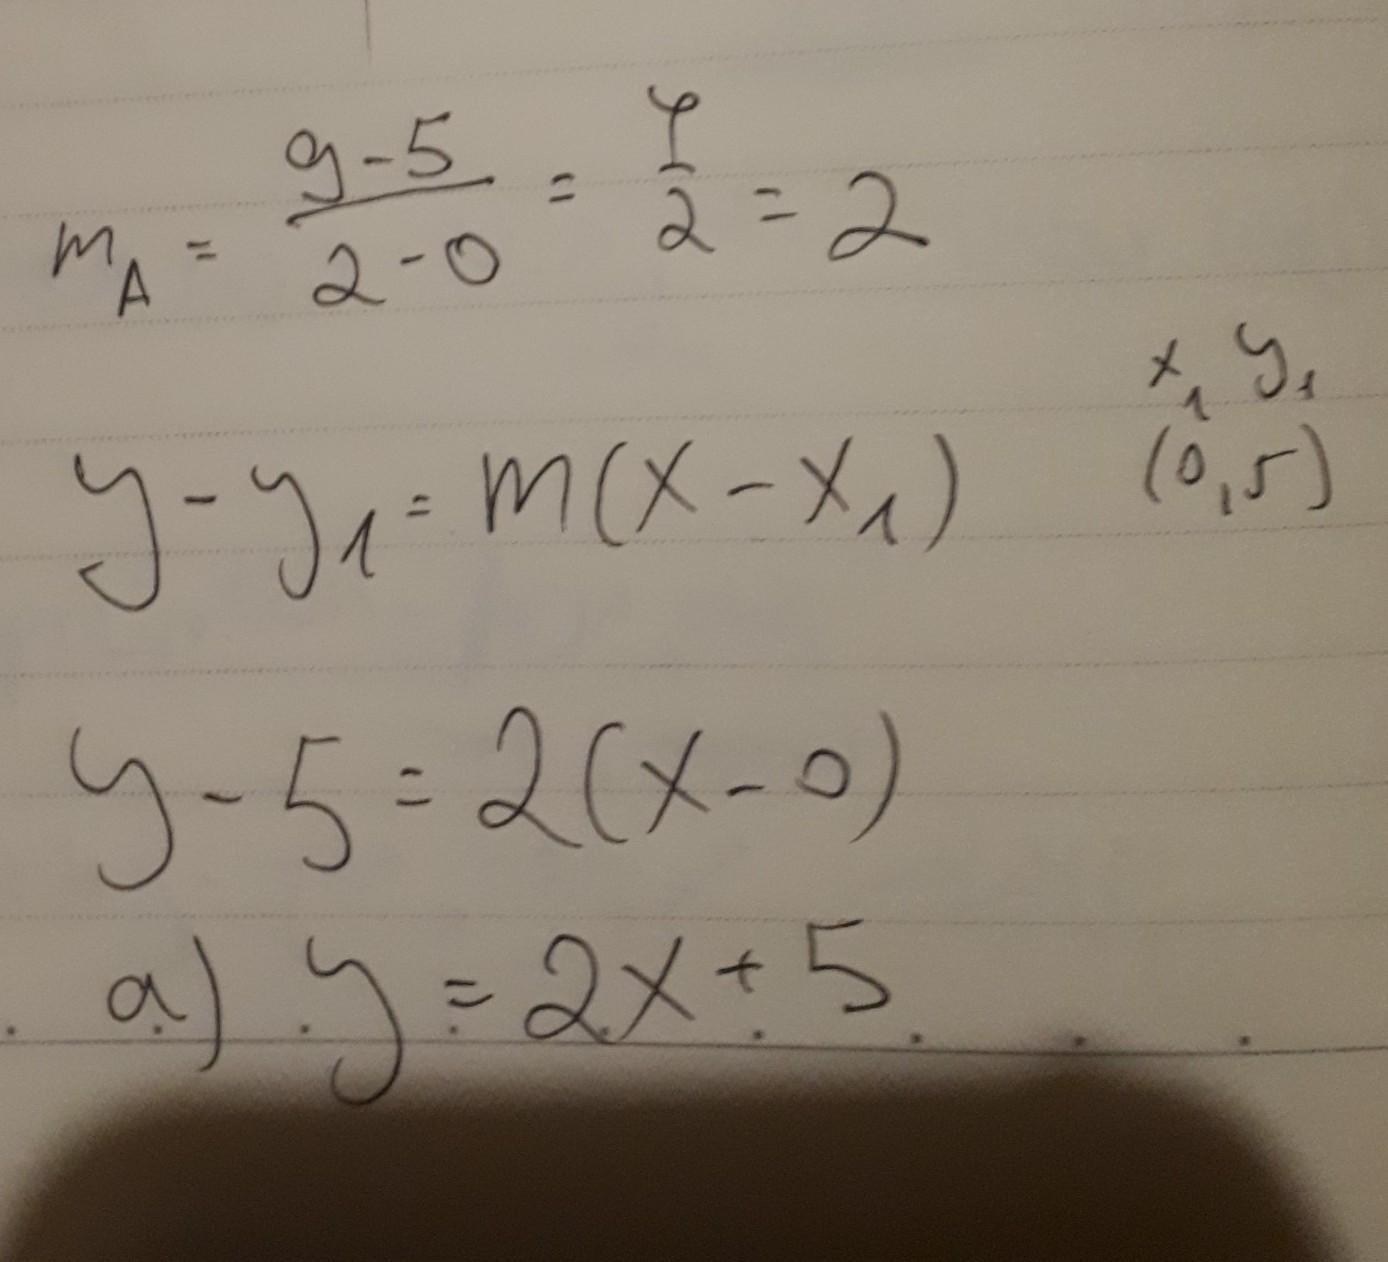 m_A = (9-5)/(2-0) = 4/2 = 2
x₁ y₁
y - y₁ = m(x - x₁) (0,5)
y - 5 = 2(x - 0)
a) y = 2x + 5